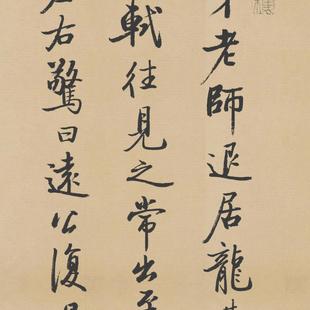 老師退居龍
軾往見之常出至
右驚曰遠公復